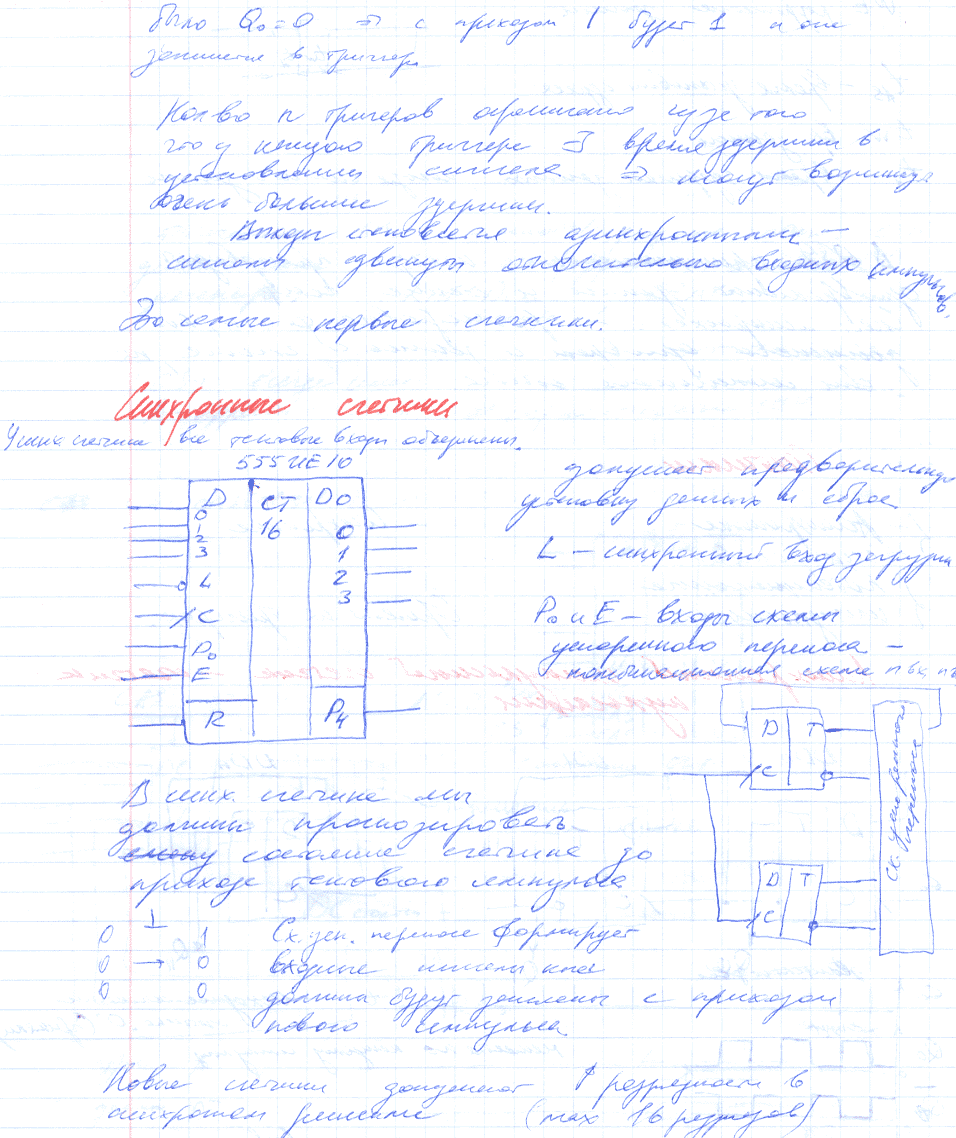 было Q₀=0 ⇒ с приходом 1 будет 1 и она
запишется в триггере
Кол-во n тригеров ограничено из-за того
что у каждого триггера ∃ время задержки в
установлении сигнала ⇒ могут возникать
очень большие задержки.
Выходы становятся асинхронными –
сигналы сдвинуты относительно входных импульсов.
Это самые первые счетчики.
Синхронные счетчики
У синх счетчика все тактовые входы объединены.
555ИЕ10
допускает предварительную
установку данных и сброс
L – синхронный вход загрузки
P₀ и E – входы схемы
ускоренного переноса –
комбинационная схема n вх, n в
D CT D0
0 16 0
1 1
2 2
3 3
L
C
P₀
E
R P₄
D T
C
D T
C
Сх. ускоренного
переноса
В синх. счетчике мы
должны прогнозировать
смену состояние счетчика до
прихода тактового импульса
0 1 Сх. уск. переноса формирует
0 → 0 входные сигналы
0 0 должны будут записаны с приходом
нового импульса
Новые счетчики допускают ↑ разрядности в
синхронном решение (max 16 разрядов)